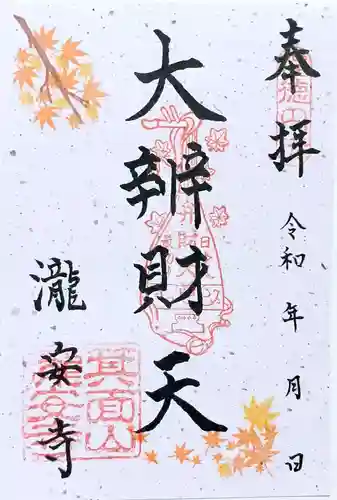 奉拝
令和 年 月 日
大辨財天
瀧安寺
箕面山
瀧安寺